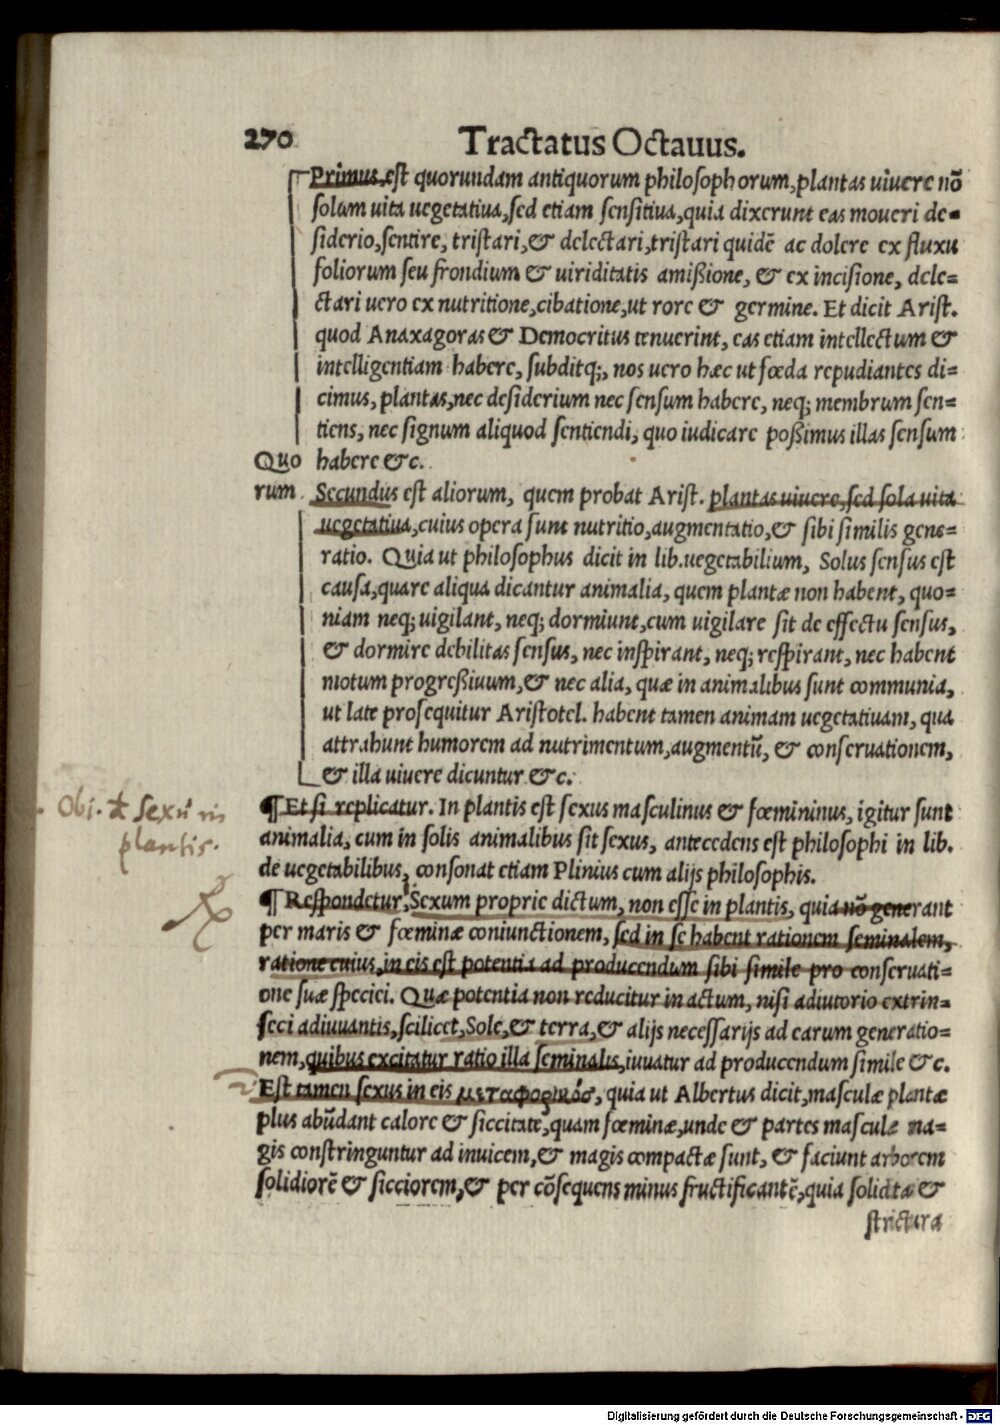 270 Tractatus Octauus.
Primus est quorundam antiquorum philosophorum, plantas uiuere nõ
solum uita uegetatiua, sed etiam sensitiua, quia dixerunt eas moueri de=
siderio, sentire, tristari, & delectari, tristari quidẽ ac dolere ex fluxu
foliorum seu frondium & uiriditatis amißione, & ex incisione, dele=
ctari uero ex nutritione, cibatione, ut rore & germine. Et dicit Arist.
quod Anaxagoras & Democritus tenuerint, eas etiam intellectum &
intelligentiam habere, subditq;, nos uero hæc ut fœda repudiantes di=
cimus, plantas, nec desiderium nec sensum habere, neq; membrum sen=
tiens, nec signum aliquod sentiendi, quo iudicare poßimus illas sensum
Quo habere &c.
rum Secundus est aliorum, quem probat Arist. plantas uiuere, sed sola uita
uegetatiua, cuius opera sunt nutritio, augmentatio, & sibi similis gene=
ratio. Quia ut philosophus dicit in lib. uegetabilium, Solus sensus est
causa, quare aliqua dicantur animalia, quem plantæ non habent, quo=
niam neq; uigilant, neq; dormiunt, cum uigilare sit de effectu sensus,
& dormire debilitas sensus, nec inspirant, neq; respirant, nec habent
motum progreßiuum, & nec alia, quæ in animalibus sunt communia,
ut late prosequitur Aristotel. habent tamen animam uegetatiuam, qua
attrahunt humorem ad nutrimentum, augmentũ, & conseruationem,
& illa uiuere dicuntur &c.
Obi. sexũ in
plantis.
¶ Et si replicatur. In plantis est sexus masculinus & fœmininus, igitur sunt
animalia, cum in solis animalibus sit sexus, antecedens est philosophi in lib.
de uegetabilibus, consonat etiam Plinius cum alijs philosophis.
¶ Respondetur, Sexum proprie dictum, non esse in plantis, quia nõ generant
per maris & fœminæ coniunctionem, sed in se habent rationem seminalem,
ratione cuius, in eis est potentia ad producendum sibi simile pro conseruati=
one suæ speciei. Quæ potentia non reducitur in actum, nisi adiutorio extrin=
seci adiuuantis, scilicet, Sole, & terra, & alijs necessarijs ad earum generatio=
nem, quibus excitatur ratio illa seminalis, iuuatur ad producendum simile &c.
Est tamen sexus in eis μεταφορικῶς, quia ut Albertus dicit, masculæ plantæ
plus abũdant calore & siccitate, quam fœminæ, unde & partes masculæ ma=
gis constringuntur ad inuicem, & magis compactæ sunt, & faciunt arborem
solidiorẽ & sicciorem, & per cõsequens minus fructificantẽ, quia soliditas &
strictura
Digitalisierung gefördert durch die Deutsche Forschungsgemeinschaft - DFG